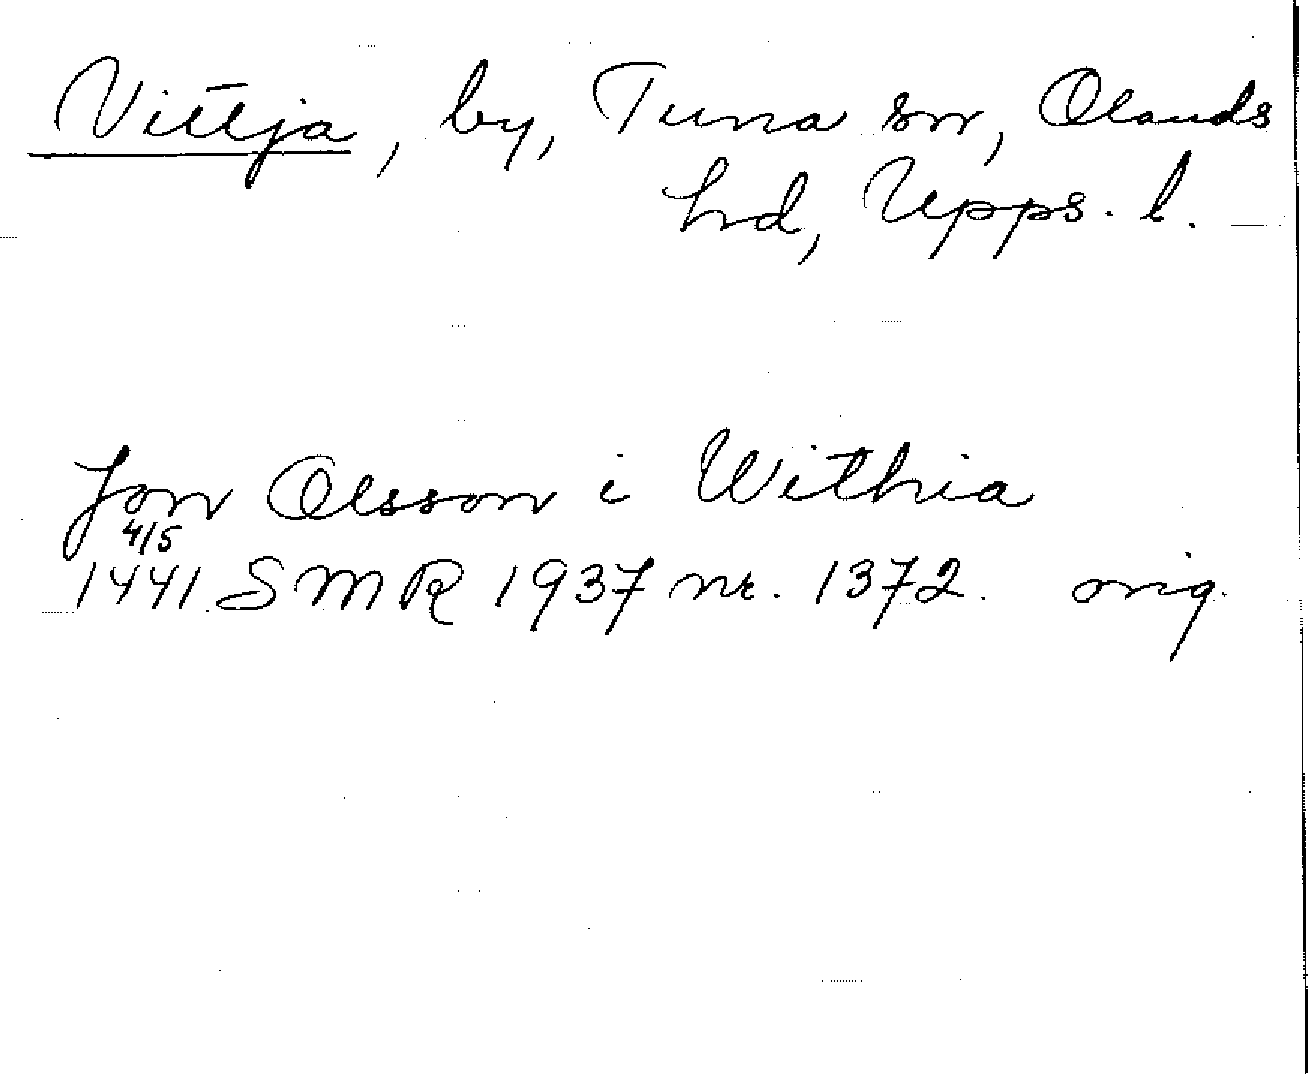 Vittja, by, Tuna sn, Olands
hd, Upps. l.
Jon Olsson i Withia
4/5
1441. SMR 1937 nr. 1372. orig.